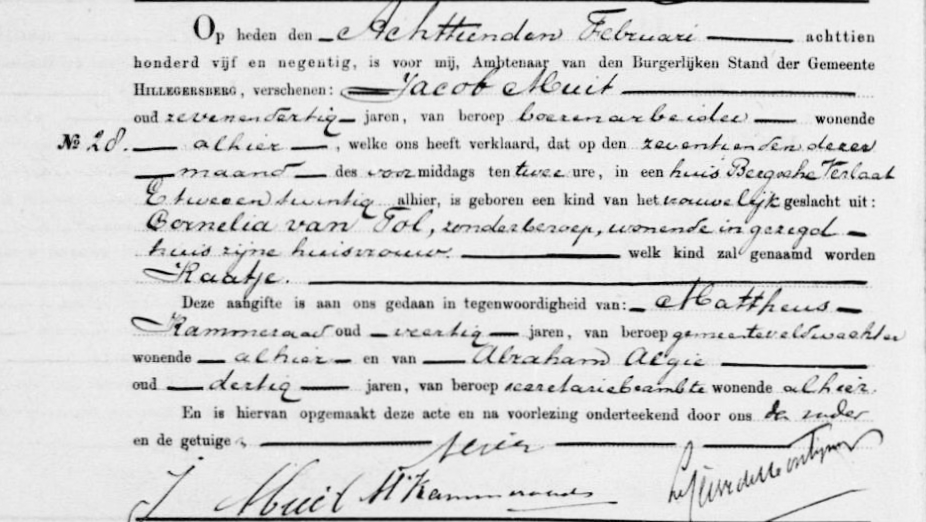 Op heden den Achttienden Februari achttien
honderd vijf en negentig, is voor mij, Ambtenaar van den Burgerlijken Stand der Gemeente
HILLEGERSBERG, verschenen: Jacob Muit
oud zevenendertig jaren, van beroep boerenarbeider wonende
№ 28. alhier, welke ons heeft verklaard, dat op den zeventienden dezer
maand des voormiddags ten twee ure, in een huis Bergsche Verlaat
E tweeen twintig alhier, is geboren een kind van het vrouwelijk geslacht uit:
Cornelia van Tol, zonder beroep, wonende in gezegd
huis zijne huisvrouw welk kind zal genaamd worden
Kaatje.
Deze aangifte is aan ons gedaan in tegenwoordigheid van: Mattheus
Kammeraad oud veertig jaren, van beroep gemeenteveldwachter
wonende alhier en van Abraham Algie
oud dertig jaren, van beroep secretariebeambte wonende alhier.
En is hiervan opgemaakt deze acte en na voorlezing onderteekend door ons de vader
en de getuigen
J Muit M Kammeraad